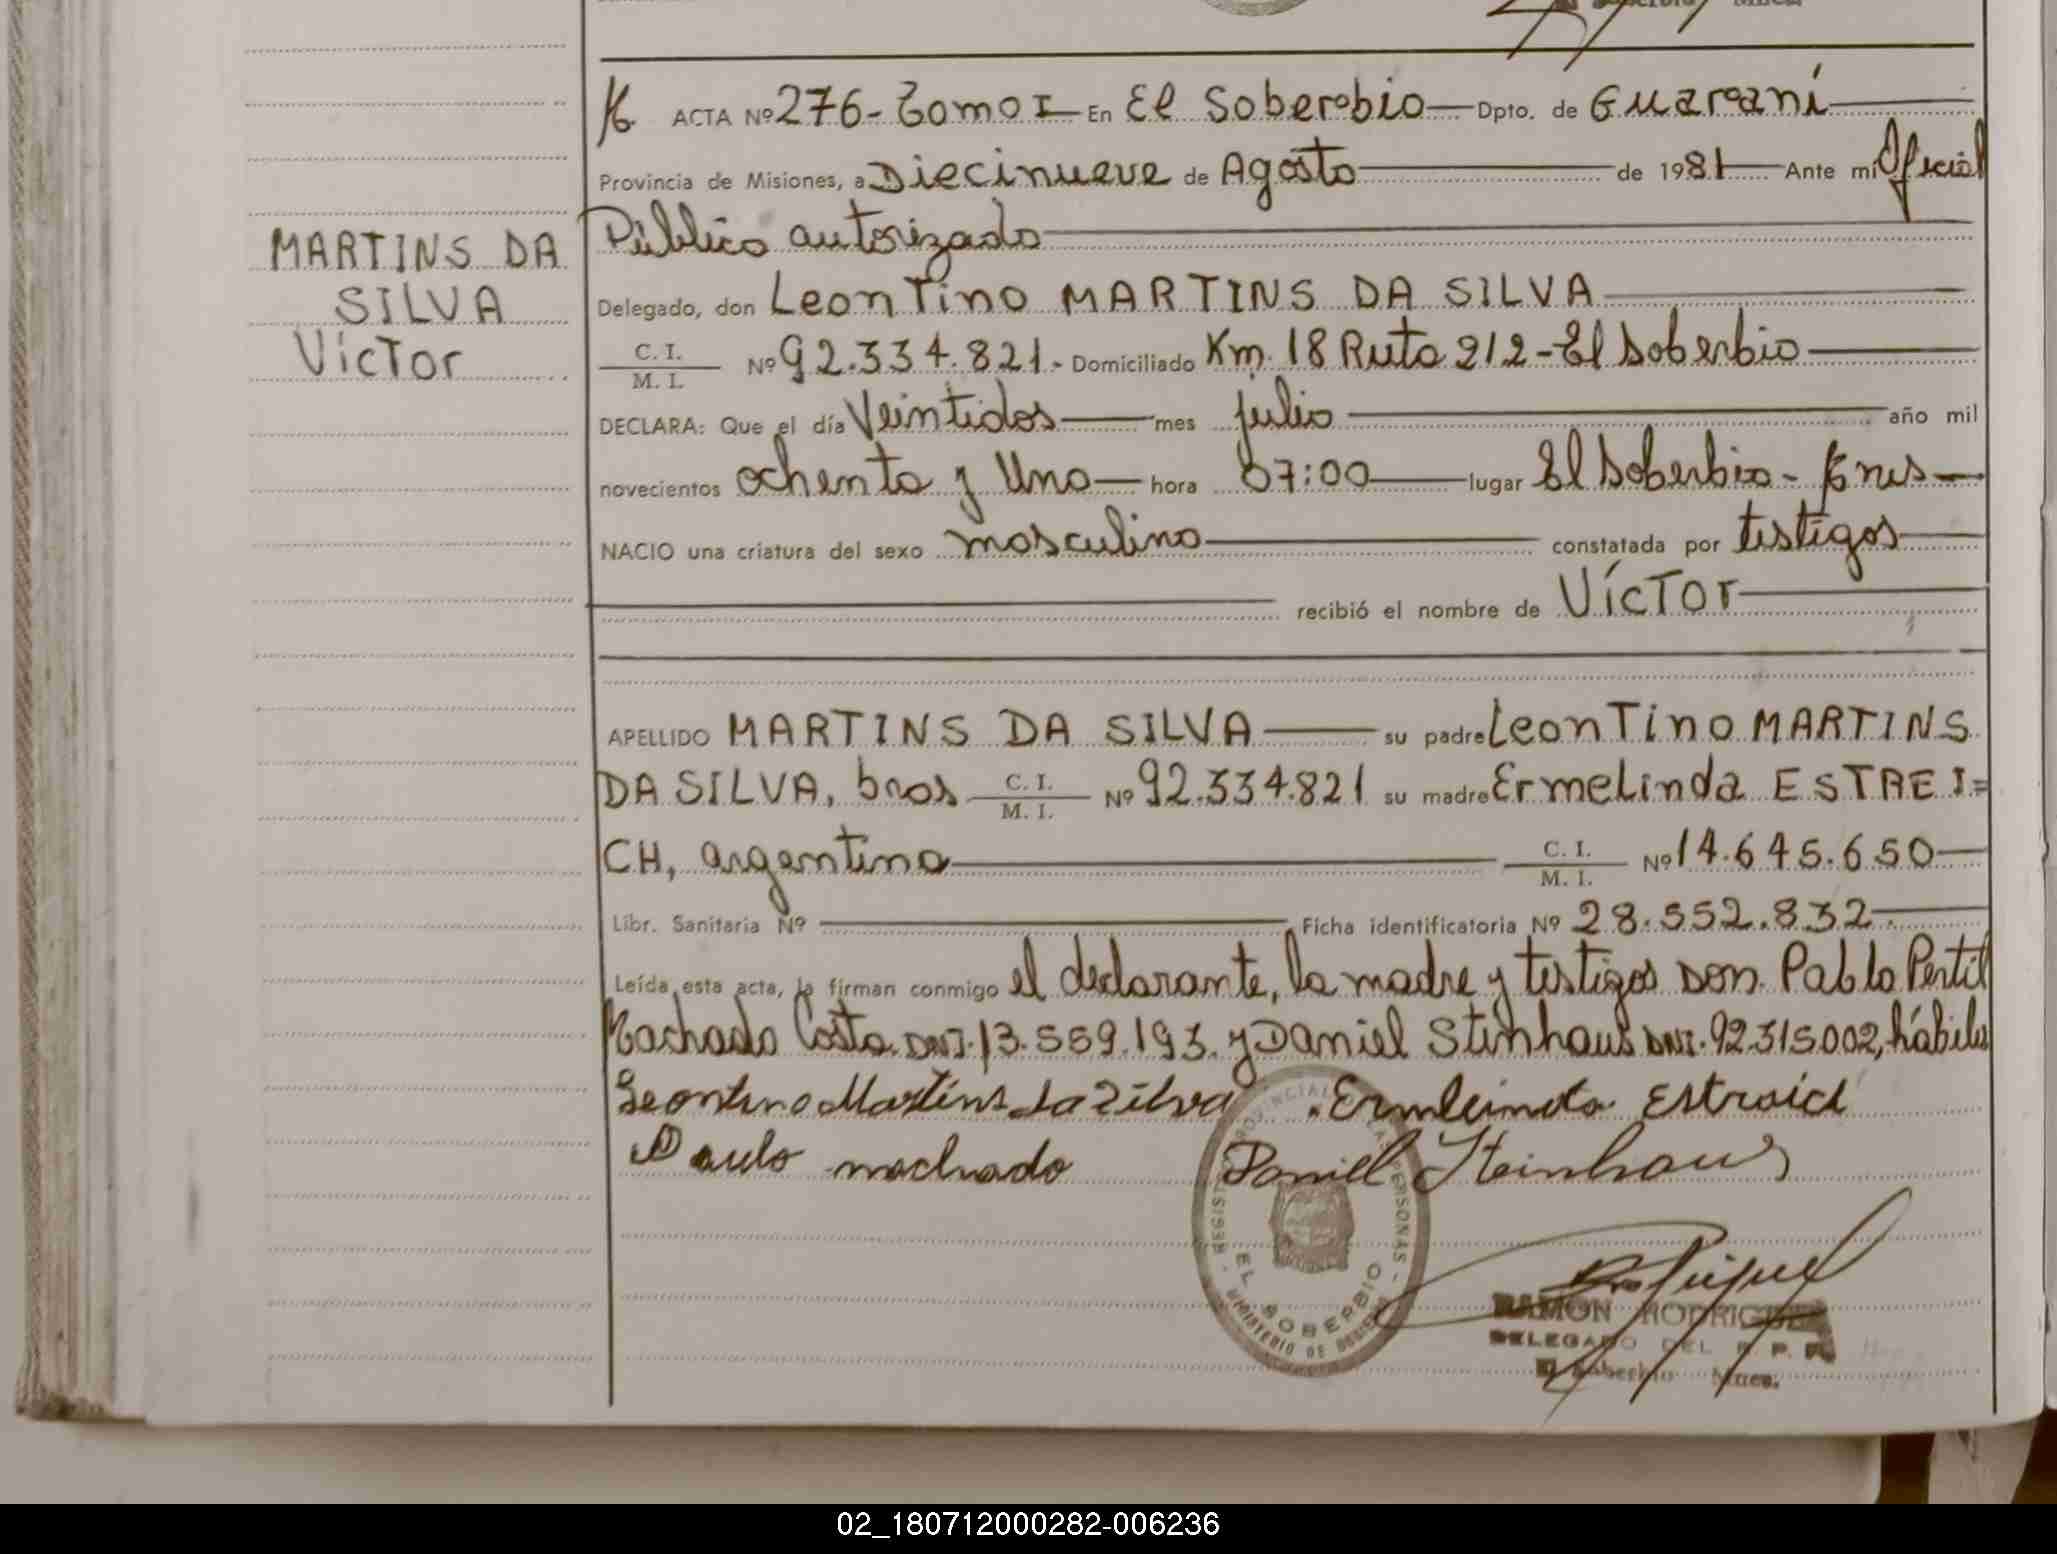 ACTA Nº 276- Tomo I En El Soberbio Dpto. de Guaraní
Provincia de Misiones, a Diecinueve de Agosto de 1981 Ante mí Oficial
Público autorizado
MARTINS DA
SILVA
Víctor
Delegado, don Leontino MARTINS DA SILVA
C. I.
M. I. Nº 92.334.821.- Domiciliado Km. 18 Ruta 212-El Soberbio
DECLARA: Que el día Veintidos mes julio año mil
novecientos ochenta y Uno hora 07:00 lugar El Soberbio-
NACIO una criatura del sexo masculino constatada por testigos
recibió el nombre de Víctor
APELLIDO MARTINS DA SILVA su padre Leontino MARTINS
DA SILVA, bras C. I.
M. I. Nº 92.334.821 su madre Ermelinda ESTREI=
CH, argentina C. I.
M. I. Nº 14.645.650
Libr. Sanitaria Nº Ficha identificatoria Nº 28.552.832
Leída esta acta, la firman conmigo el declarante, la madre y testigos Don. Pablo Pertil
Machado Costa DNI. 13.559.193. y Daniel Stinhaus DNI. 92.315.002, hábiles
Leontino Martins da Silva Ermelinda Estraich
Paulo machado Daniel Steinhaus
EL SOBERBIO
RAMON RODRIGUEZ
DELEGADO DEL R. P. P.
El Soberbio Mnes.
02_180712000282-006236